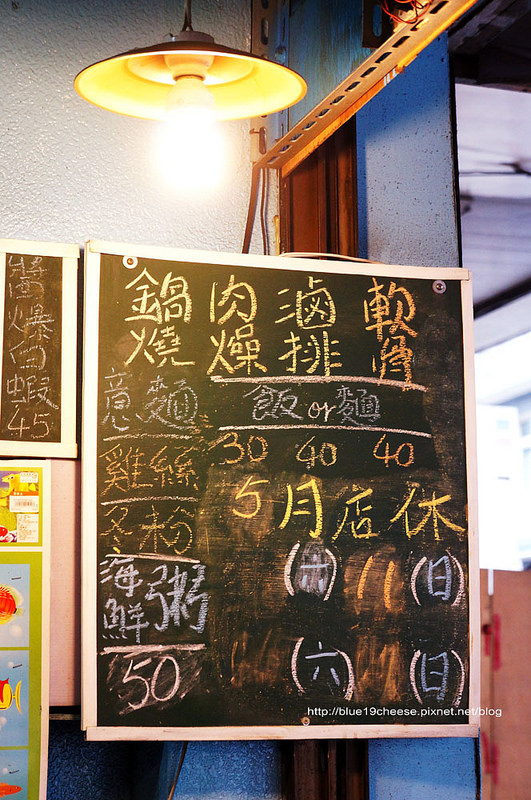 醬爆白蝦45
鍋燒
意麵
雞絲
冬粉
海鮮粥
50
肉燥 滷排 軟骨
飯or麵
30 40 40
5月店休
11 (日)
(六) (日)
http://blue19cheese.pixnet.net/blog